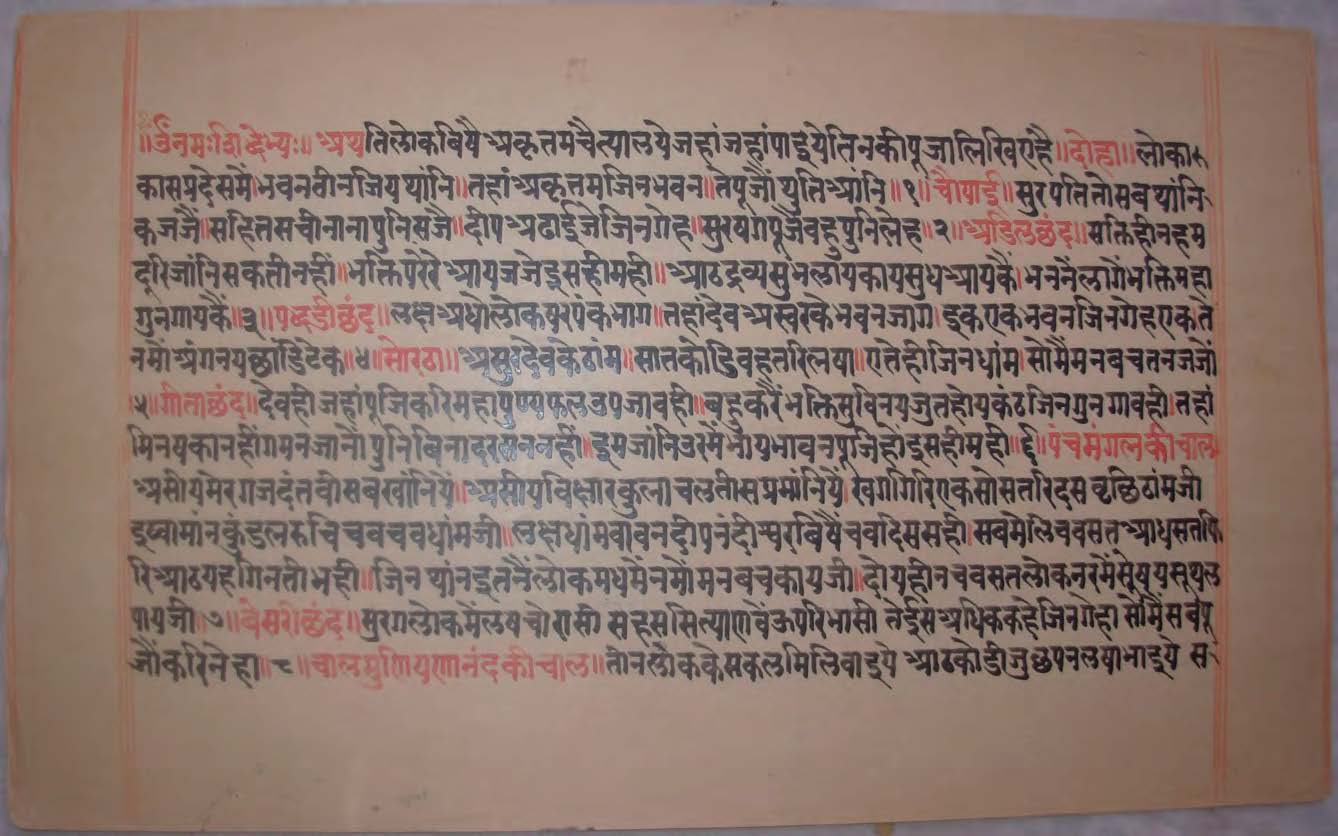 ॥ॐनमःसिद्धेभ्यः॥ अथतिलोकबिषैअकृत्तमचैत्यालयेजहांजहांपाइयेतिनकीपूजालिखिएहै॥दोहा॥लोका
कासप्रदेसमें॥भवनवीनजियथांनि॥तहांअकृत्तमजिनभवन॥तेपूजौंथुतिआंनि॥१॥चौपाई॥सुरपतितोसबथांनि
कजजैं॥सहितसचीनानापुनिसजै॥दीपअढाईजेजिनगेह॥सुरषगपूजैबहुपुनिलेह॥२॥अडिलछंद॥सक्तिहीनहम
दूरिजांनिसकतीनहीं॥भक्तिपरेरेआयजजेइसहीमही॥आठद्रव्यसुभलायकायसुधआयकैं॥भननेंलागेभक्तिमहा
गुनगायकैं॥३॥पद्धडीछंद॥लक्षअधोलोकषरपंकभाग॥तहांदेवअसुरकेभवनजाग॥इकएकभवनजिनगेहएकते
नमोंअंगनयछांडिटेक॥४॥सोरठा॥असुरदेवकेठांम॥सातकोडिवहतरिलषा॥एतेहीजिनधांम॥सोमैंमनबचतनजजों
५॥गीताछंद॥देवहीजहांपूजिकरिमहापुण्यफलउपजावही॥बहुकरैंभक्तिसुविनयजुतहोयकंठजिनगुनगावही॥तहां
मिनषकानहींगमनजानौंपुनिबिनादरसननहीं॥इमजांनिउरमेंभायभावनपूजिहोंइसहीमही॥६॥पंचमंगलकीचाल
असीयमेरगजदंतवीसबखांनियें॥असीयविक्षारकुलाचलतीसप्रमांनियें॥खगगिरिएकसोसतरिदसवृछिठांमजी
इष्वामांनकुंडलरुचिचवचवधांमजी॥लक्षधांमबावनदीपनंदीश्वरबिषैंचवदिससही॥सबमेलिचवसतआधसतपि
रिआठयहगिनतीभही॥जिनथांनइतनैंलोकमधमेंनमोंमनबचकायजी॥दोयहीनचवसतलोकनरमेंसूषयसूथल
पायजी॥७॥बेसरीछंद॥सुरगलोकमेंलषचोरासीसहससित्याणवेंऊपरिभासीतेईसअधिककहेजिनगेहासोमैंसबपू
जौंकरिनेहा॥८॥चालमुणियणानंदकीचाल॥तीनलोककेसकलमिलिवाइयेआठकोडीजुछपनलषाभाइयेस